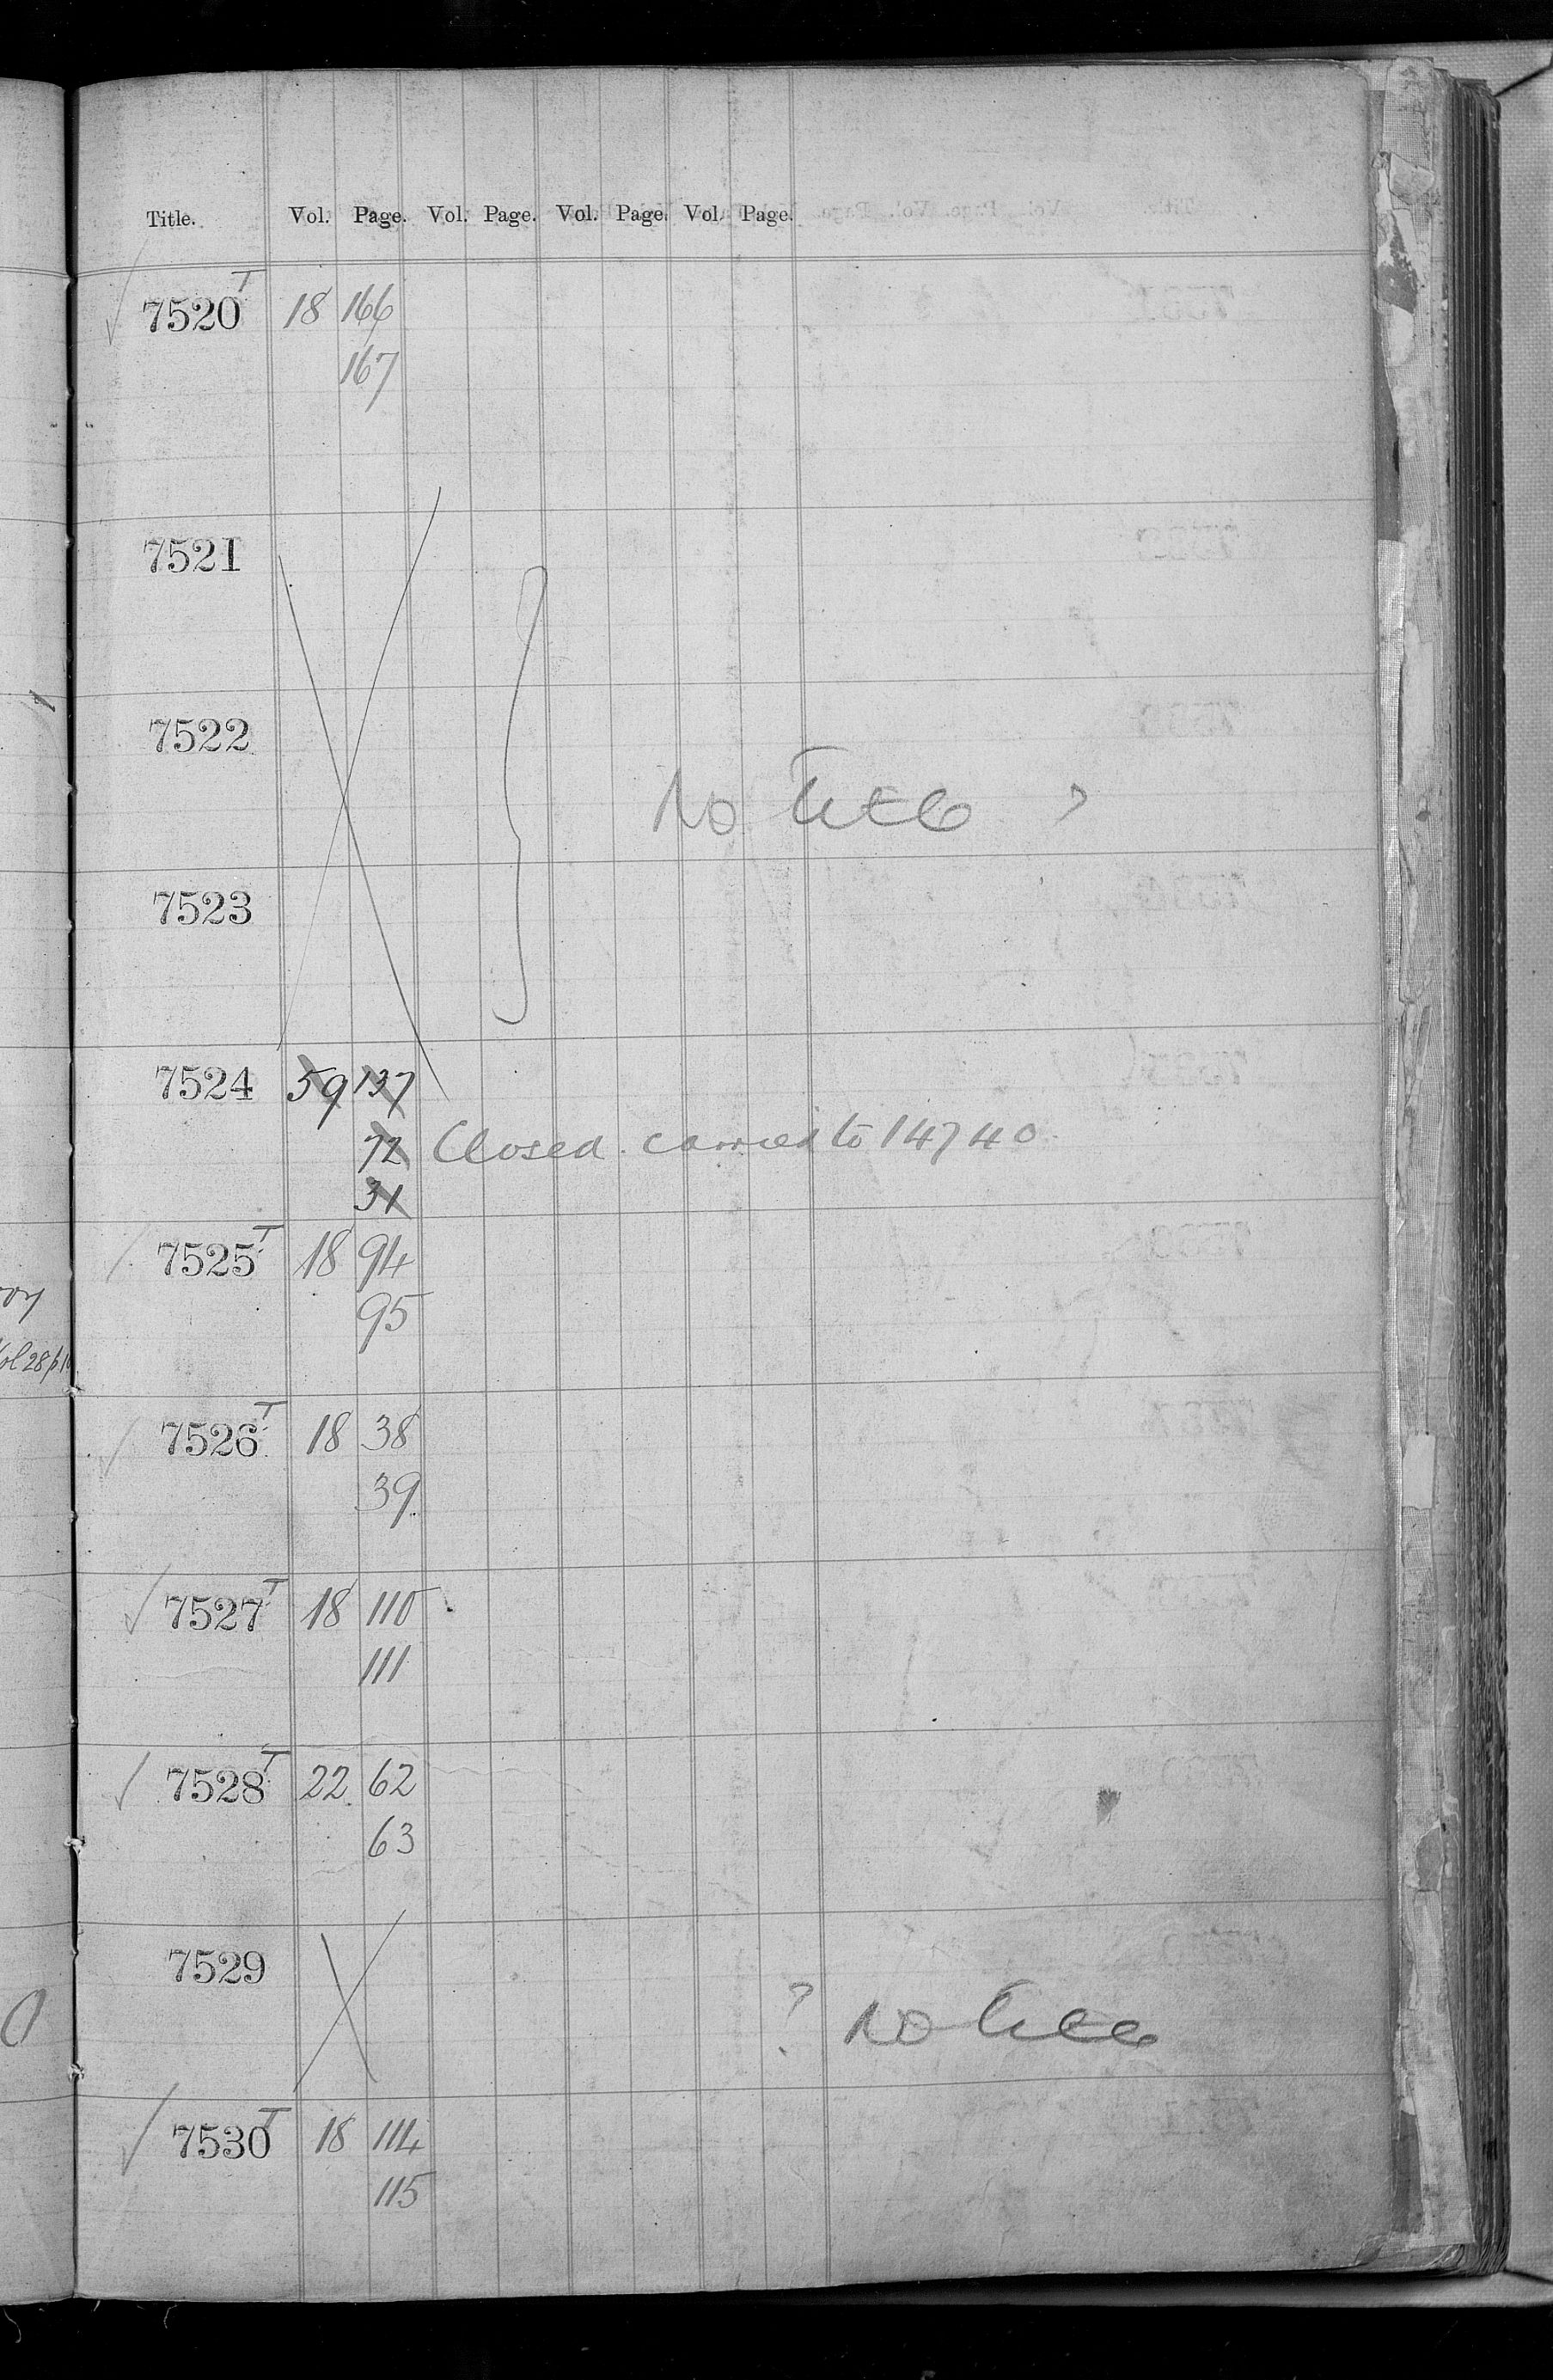 Title. Vol. Page. Vol. Page. Vol. Page. Vol. Page.
7520 T 18 166
167
7521
7522
No title ?
7523
7524 59 137
72 Closed. carried to 14740
31
7525 T 18 94
95
Vol 28 p
7526 T 18 38
39
7527 T 18 110
111
7528 T 22 62
63
7529
? No title
7530 T 18 114
115